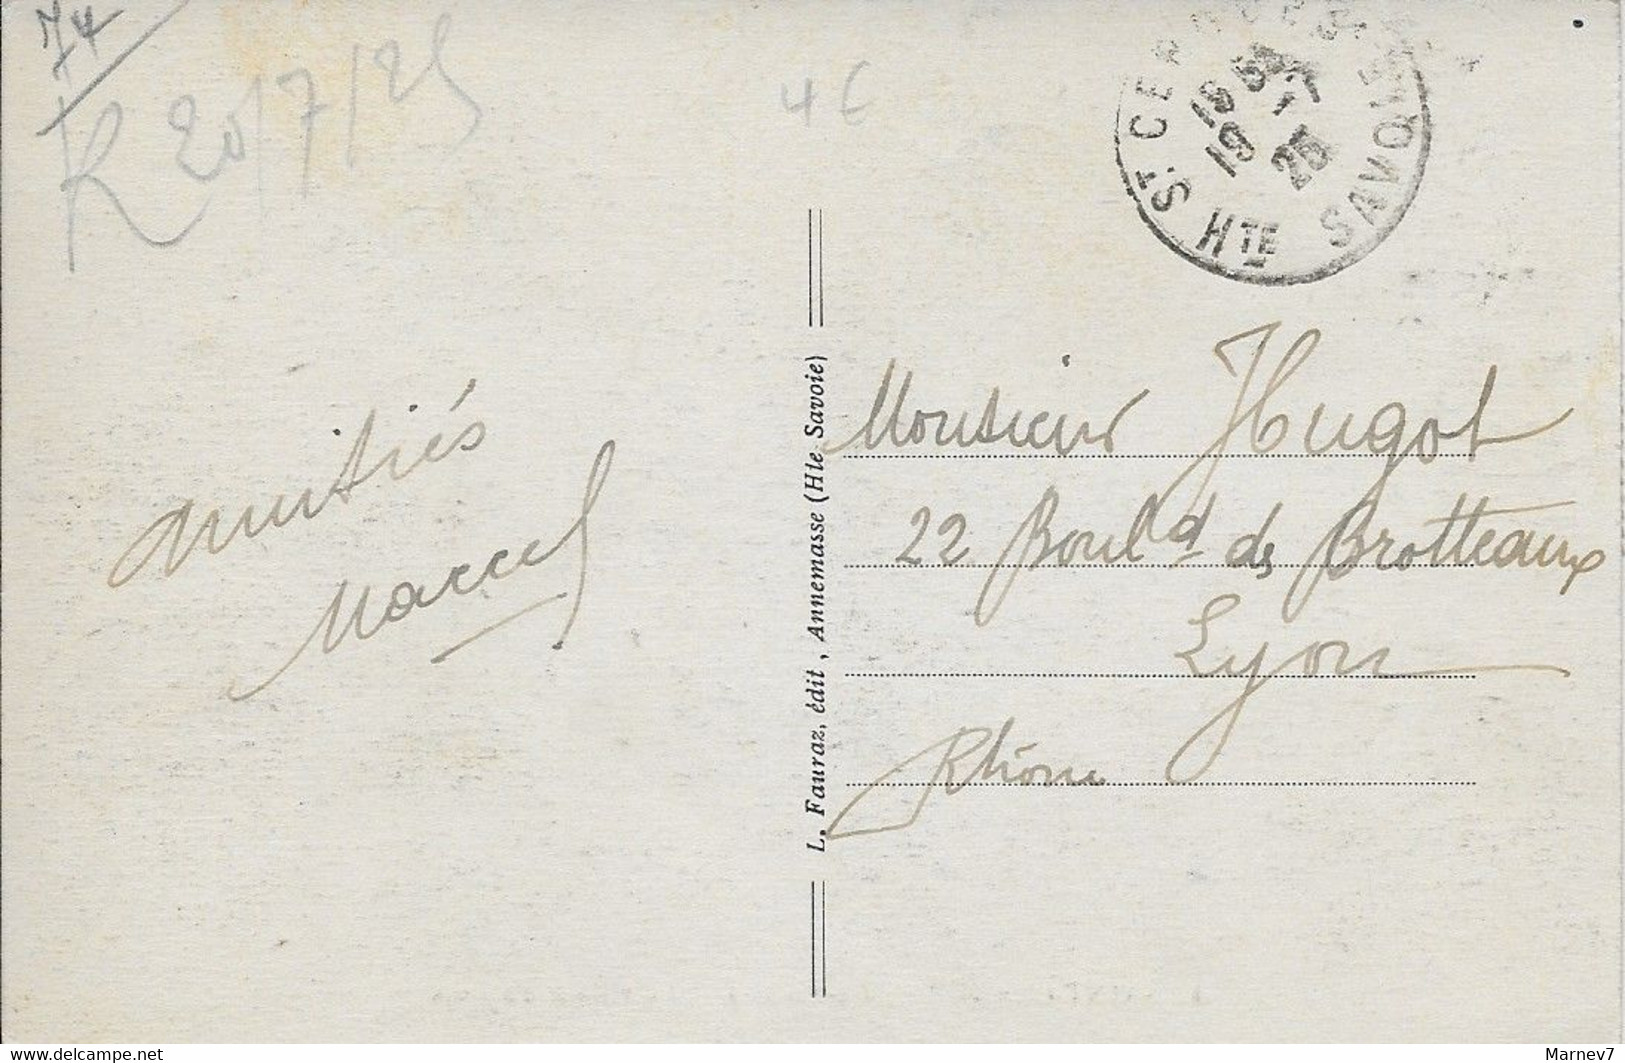 74
R 20/7/25
4 €
ST CERGUES
HTE SAVOIE
19 -7
25
amitiés
Marcel
L. Fauraz, édit, Annemasse (Hte Savoie)
Monsieur Hugot
22 Boul^d des Brotteaux
Lyon
Rhône
www.delcampe.net
Marnev7